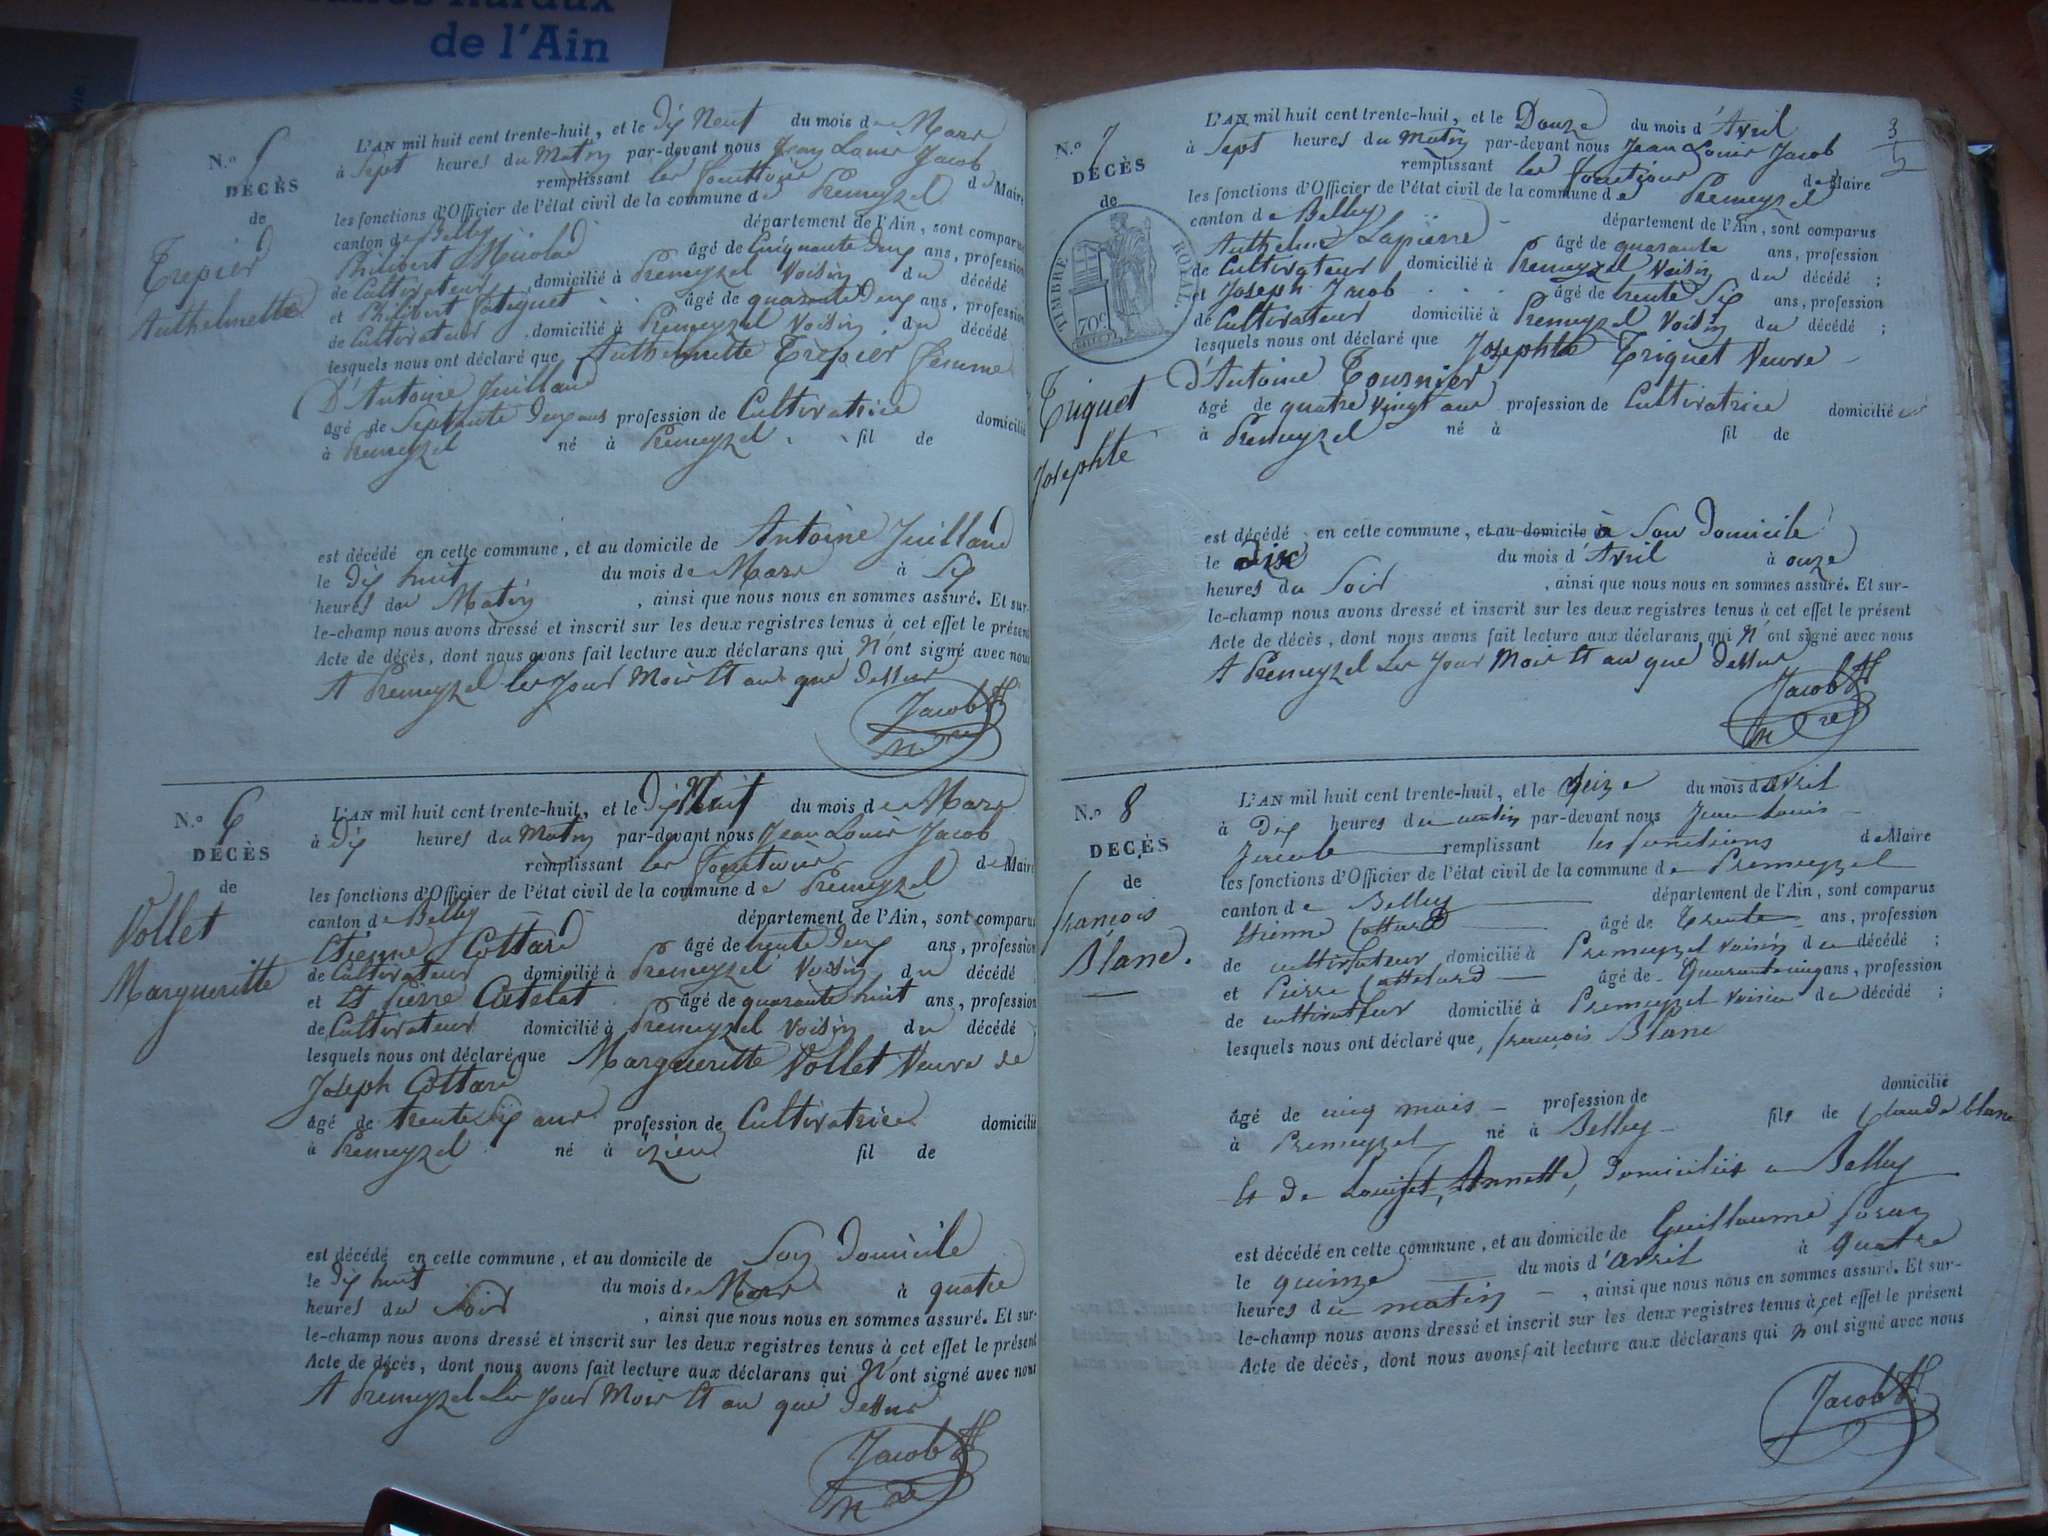 de l'Ain
N.o 5
DÉCÈS
de
Trepier
Anthelmette
L'AN mil huit cent trente-huit, et le Dix Neuf du mois de Mars
à Sept heures du Matin par-devant nous Jean Louis Jacob
remplissant les fonctions de Maire
les fonctions d'Officier de l'état civil de la commune de Premeyzel
canton de Belley département de l'Ain, sont comparus
Philibert âgé de Cinquante Deux ans, profession
de Cultivateur domicilié à Premeyzel Voisin du décédé
et Philibert âgé de quarante Deux ans, profession
de Cultivateur domicilié à Premeyzel Voisin du décédé
lesquels nous ont déclaré que Anthelmette Trepier femme
D'Antoine Juilland
âgé de Septante Deux ans profession de Cultivatrice domicilié
à Premeyzel né à Premeyzel fil de
est décédé en cette commune, et au domicile de Antoine Juilland
le Dix huit du mois de Mars à Six
heures du Matin, ainsi que nous nous en sommes assuré. Et sur-
le-champ nous avons dressé et inscrit sur les deux registres tenus à cet effet le présent
Acte de décès, dont nous avons fait lecture aux déclarans qui N'ont signé avec nous
A Premeyzel les Jour Mois Et an que Dessus
Jacob
N.o 6
DÉCÈS
de
Vollet
Margueritte
L'AN mil huit cent trente-huit, et le Dix Neuf du mois de Mars
à Dix heures du Matin par-devant nous Jean Louis Jacob
remplissant les fonctions de Maire
les fonctions d'Officier de l'état civil de la commune de Premeyzel
canton de Belley département de l'Ain, sont comparus
Etienne Cottard âgé de trente Deux ans, profession
de Cultivateur domicilié à Premeyzel Voisin du décédé
et Et Pierre Catelat âgé de quarante huit ans, profession
de Cultivateur domicilié à Premeyzel Voisin du décédé
lesquels nous ont déclaré que Margueritte Vollet Veuve de
Joseph Cottard
âgé de trente Six ans profession de Cultivatrice domicilié
à Premeyzel né à izieu fil de
est décédé en cette commune, et au domicile de Son Domicile
le Dix huit du mois de Mars à quatre
heures du Soir, ainsi que nous nous en sommes assuré. Et sur-
le-champ nous avons dressé et inscrit sur les deux registres tenus à cet effet le présent
Acte de décès, dont nous avons fait lecture aux déclarans qui N'ont signé avec nous
A Premeyzel les Jour Mois Et an que Dessus
Jacob
3
N.o 7
DÉCÈS
de
TIMBRE ROYAL
70c
Triquet
Josephte
L'AN mil huit cent trente-huit, et le Douze du mois d'Avril
à Sept heures du Matin par-devant nous Jean Louis Jacob
remplissant les fonctions de Maire
les fonctions d'Officier de l'état civil de la commune de Premeyzel
canton de Belley département de l'Ain, sont comparus
Anthelme Lapierre âgé de quarante ans, profession
de Cultivateur domicilié à Premeyzel Voisin du décédé ;
et Joseph Jacob âgé de trente Six ans, profession
de Cultivateur domicilié à Premeyzel Voisin du décédé ;
lesquels nous ont déclaré que Josephte Triquet Veuve
d'Antoine Tournier
âgé de quatre Vingt ans profession de Cultivatrice domicilié
à Premeyzel né à fil de
est décédé en cette commune, et au domicile à Son Domicile
le dix du mois d'Avril à onze
heures du Soir, ainsi que nous nous en sommes assuré. Et sur-
le-champ nous avons dressé et inscrit sur les deux registres tenus à cet effet le présent
Acte de décès, dont nous avons fait lecture aux déclarans qui N'ont signé avec nous
A Premeyzel les Jour Mois Et an que Dessus
Jacob
N.o 8
DÉCÈS
de
françois
Blanc.
L'AN mil huit cent trente-huit, et le Seize du mois d'avril
à Dix heures du matin par-devant nous Jean Louis
Jacob remplissant les fonctions de Maire
les fonctions d'Officier de l'état civil de la commune de Premeyzel
canton de Belley département de l'Ain, sont comparus
Etienne Cottard âgé de Trente ans, profession
de cultivateur domicilié à Premeyzel voisin du décédé ;
et Pierre âgé de Quarante cinq ans, profession
de cultivateur domicilié à Premeyzel voisin du décédé ;
lesquels nous ont déclaré que, françois Blanc
âgé de cinq mois profession de domicilié
à Premeyzel né à Belley fils de Claude blanc
Et De Annette, domiciliés a Belley
est décédé en cette commune, et au domicile de Guillaume
le quinze du mois d'avril à quatre
heures du matin, ainsi que nous nous en sommes assuré. Et sur-
le-champ nous avons dressé et inscrit sur les deux registres tenus à cet effet le présent
Acte de décès, dont nous avons fait lecture aux déclarans qui n'ont signé avec nous
Jacob